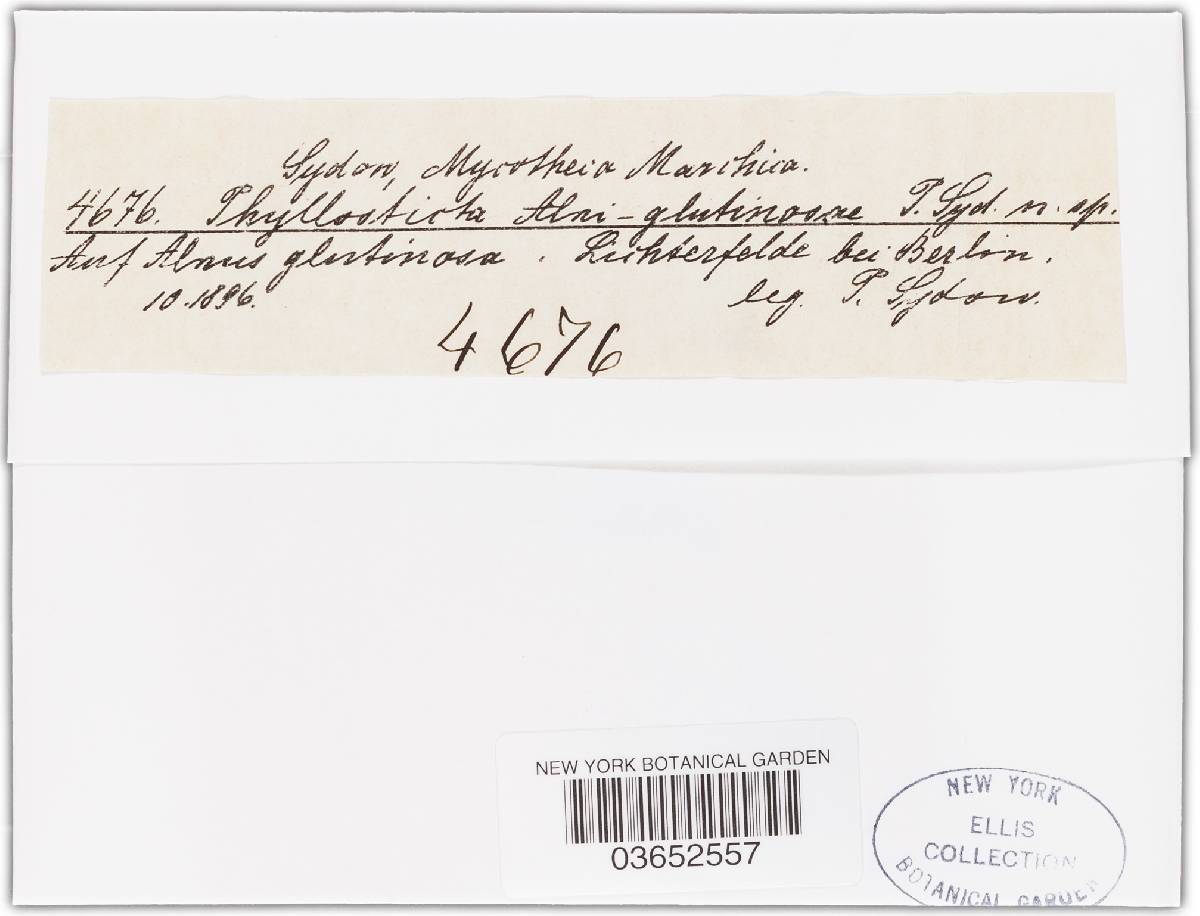 Sydow, Mycotheca Marchica.
4676. Phyllosticta Alni-glutinosae P. Syd. n. sp.
Auf Alnus glutinosa. Lichterfelde bei Berlin.
10.1896. leg. P. Sydow.
4676
NEW YORK BOTANICAL GARDEN
03652557
NEW YORK
ELLIS
COLLECTION
BOTANICAL GARDEN